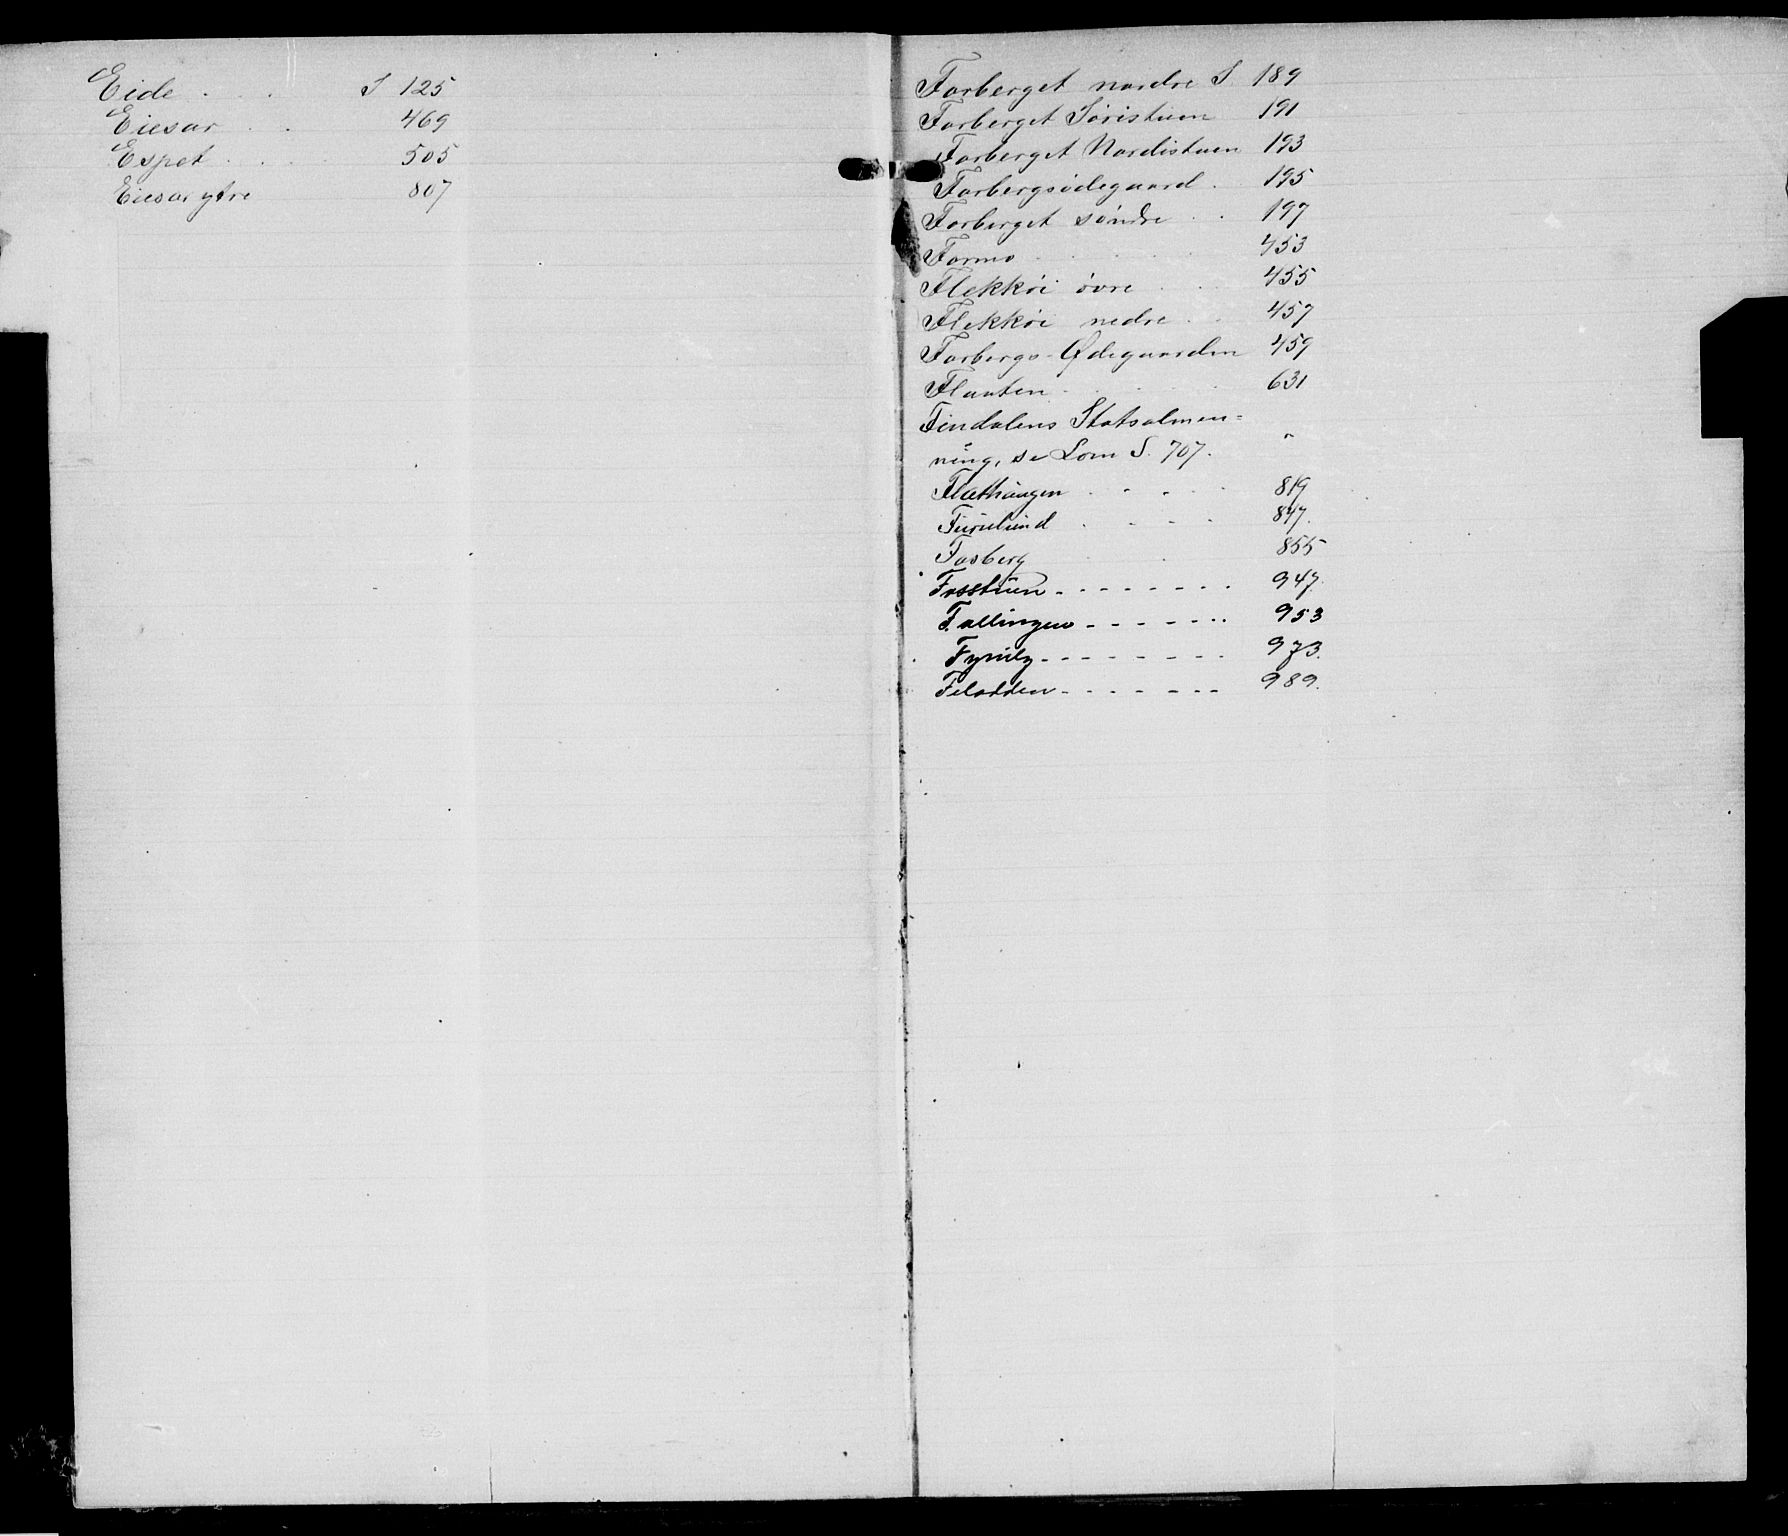 Eide . . . S 125
Eiesar . . 469
Espet . . . . 505
Eiesar ytre 807
Forberget nordre S. 189
Forberget Søristuen 191
Forberget Nordistuen 193
Forbergsødegaard . 195
Forberget søndre . . 197
Formo . . . . . 453
Flekkøi øvre . . 455
Flekkøi nedre . . 457
Forbergs-Ødegaarden 459
Flaaten . . . . . 631
Findalens Statsalmen=
ning, se Lom S. 707. "
Flæthaugen . . . . . 819
Furulund . . . . 847.
Fosberg . . 855
Fosstuen - - - - - - - - 947.
Fallingen - - - - - - 953
- - - - - - - - 973.
- - - - - - - 989.